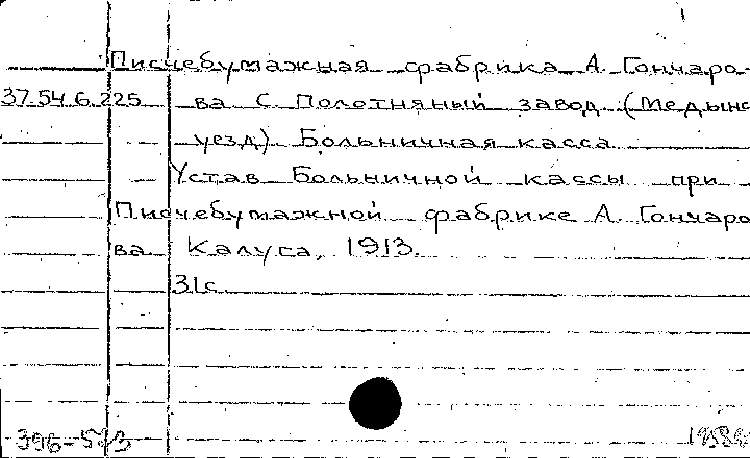 Писчебумажная фабрика А. Гончаро-
37.54.6.225 ва С. Полотняный завод (Медынс
уезд) Больничная касса
Устав Больничной кассы при
Писчебумажной фабрике А. Гончаро
ва Калуга, 1913.
31с.